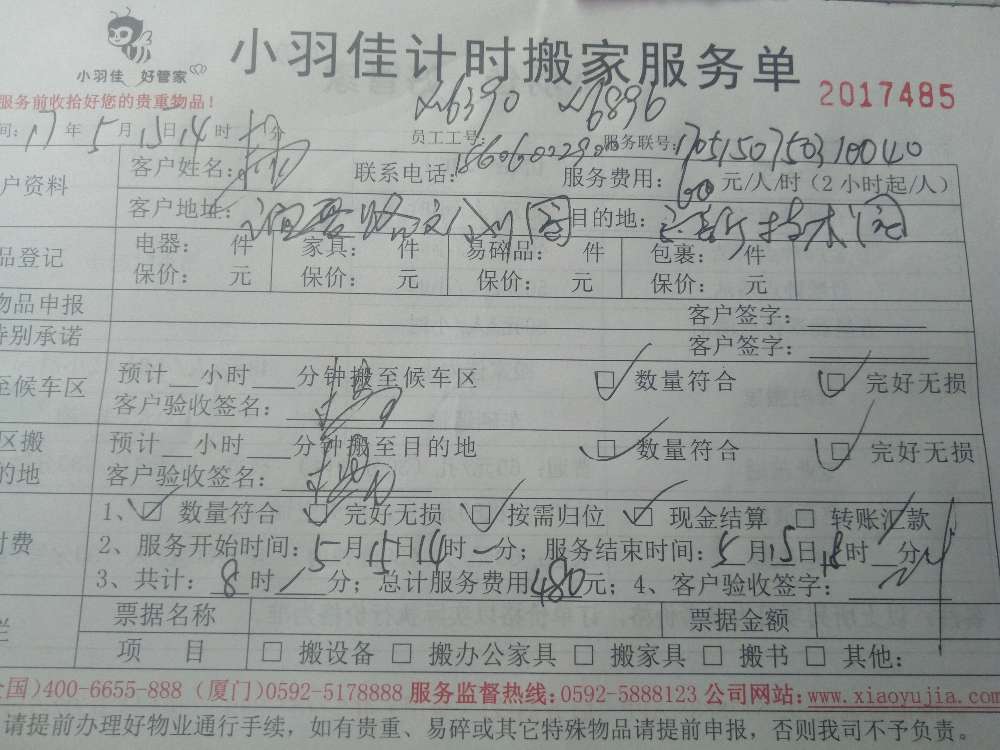 小羽佳 好管家
小羽佳计时搬家服务单
服务前收拾好您的贵重物品！
2017485
26390 26896
间：17年5月15日14时 分
员工工号： 服务联号：1705150750310040
户资料 客户姓名： 联系电话： 服务费用：60元/人/时（2小时起/人）
客户地址： 目的地：
品登记 电器： 件 家具： 件 易碎品： 件 包裹： 件
保价： 元 保价： 元 保价： 元 保价： 元
物品申报 客户签字：
特别承诺 客户签字：
至候车区 预计 小时 分钟搬至候车区 □ 数量符合 □ 完好无损
客户验收签名：
区搬 预计 小时 分钟搬至目的地 □ 数量符合 □ 完好无损
的地 客户验收签名：
1、□ 数量符合 □ 完好无损 □ 按需归位 □ 现金结算 □ 转账汇款
付费 2、服务开始时间：5月15日14时 分；服务结束时间：5月15日18时 分
3、共计：8时 分；总计服务费用480元；4、客户验收签字：
栏 票据名称 票据金额
项 目 □ 搬设备 □ 搬办公家具 □ 搬家具 □ 搬书 □ 其他：
全国）400-6655-888（厦门）0592-5178888 服务监督热线：0592-5888123 公司网站：www.xiaoyujia.com
请提前办理好物业通行手续，如有贵重、易碎或其它特殊物品请提前申报，否则我司不予负责。